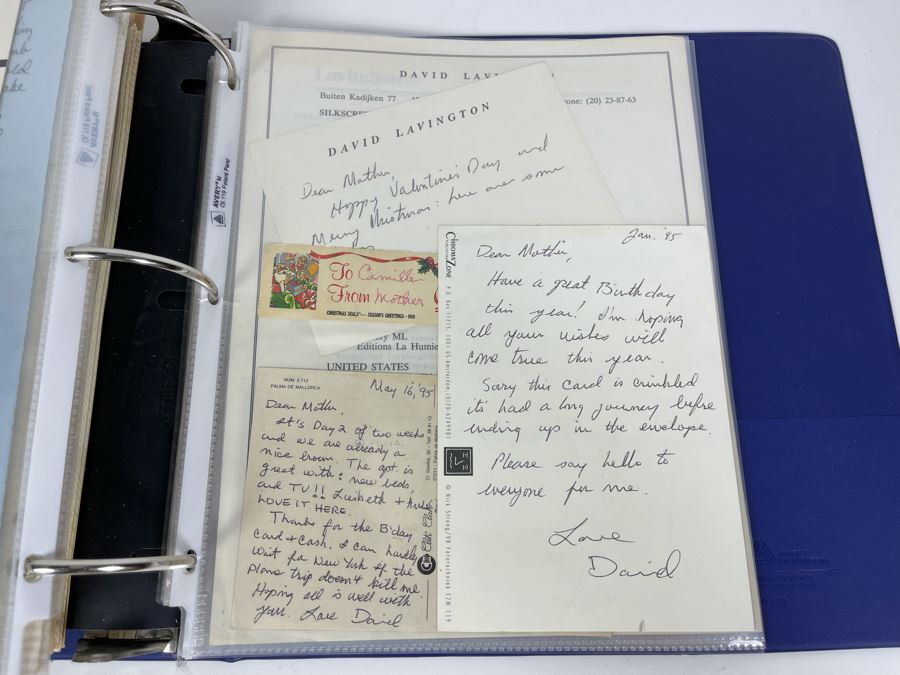 DAVID LAV
Buiten Kadijken 77
one: (20) 23-87-63
SILKSCRE
DAVID LAVINGTON
Dear Mother,
Happy Valentine's Day and
Merry Christmas: here are some
To Camille
From Mother
CHRISTMAS SEALS — SEASON'S GREETINGS
ry ML
Editions La Humie
UNITED STATES
NUM. 2.712
PALMA DE MALLORCA
May 16, '95
Dear Mother,
It's Day 2 of two weeks
and we are already a
nice brown. The apt. is
great with: new beds,
and TV!! Liesbeth +
LOVE IT HERE.
Thanks for the B'day
Card + Cash. I can hardly
wait for New York if the
plane trip doesn't kill me.
Hoping all is well with
you. Love David
CHROMAZONE
Jan. '95
Dear Mother,
Have a great Birthday
this year! I'm hoping
all your wishes will
come true this year.
Sorry this card is crinkled
it's had a long journey before
ending up in the envelope.
Please say hello to
everyone for me.
Love
David
AVERY